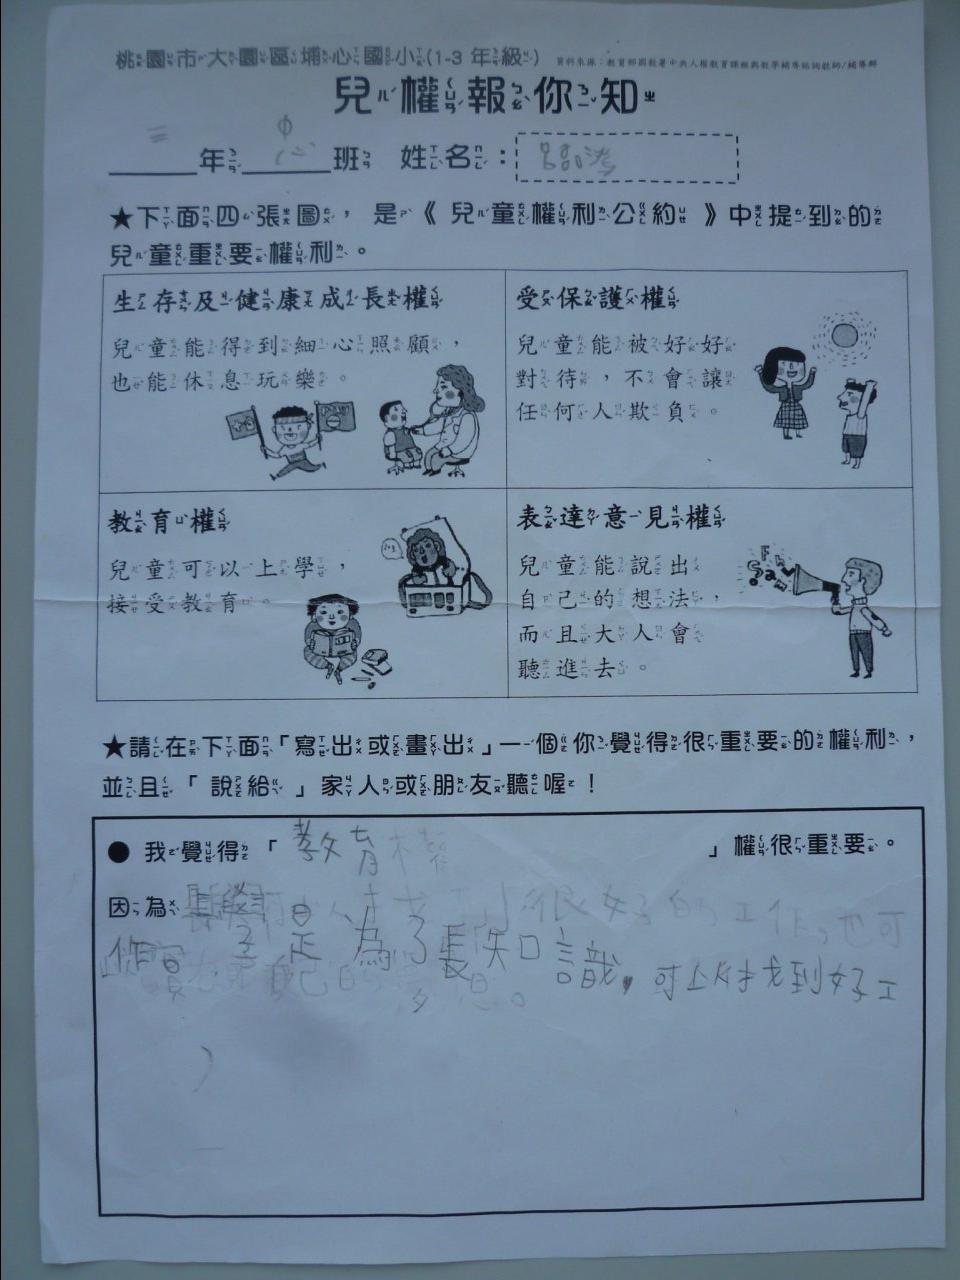 桃園市大園區埔心國小(1-3年級)
資料來源：教育部國教署中央人權教育課程與教學輔導諮詢教師/輔導群
兒權報你知
三年 心班 姓名：
★下面四張圖，是《兒童權利公約》中提到的
兒童重要權利。
生存及健康成長權
兒童能得到細心照顧，
也能休息玩樂。
受保護權
兒童能被好好
對待，不會讓
任何人欺負。
教育權
兒童可以上學，
接受教育。
表達意見權
兒童能說出
自己的想法，
而且大人會
聽進去。
★請在下面「寫出或畫出」一個你覺得很重要的權利，
並且「說給」家人或朋友聽喔！
●我覺得「教育」權很重要。
因為
學是為了長知識，可以找到好工
作